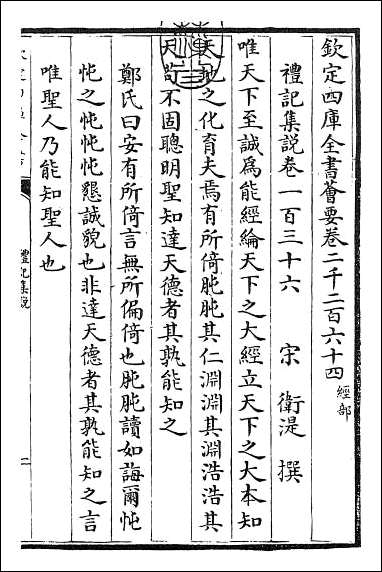 欽定四庫全書薈要卷二千二百六十四 經部
禮記集說卷一百三十六 宋 衛湜 撰
唯天下至誠為能經綸天下之大經立天下之大本知
天地之化育夫焉有所倚肫肫其仁淵淵其淵浩浩其
天苟不固聰明聖知達天德者其孰能知之
鄭氏曰安有所倚言無所偏倚也肫肫讀如誨爾忳
忳之忳忳忳懇誠貌也非達天德者其孰能知之言
唯聖人乃能知聖人也
禮記集說